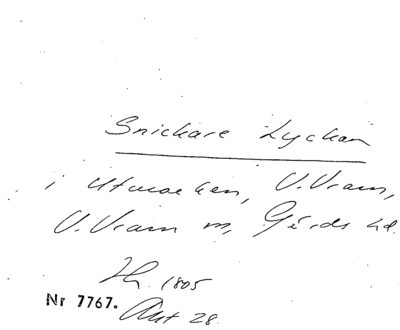 Snickare Lyckan
i Utmarken, V. Vram,
V. Vram sn, Gärds hd.
Hh. 1805
Nr 7767. Akt 28.